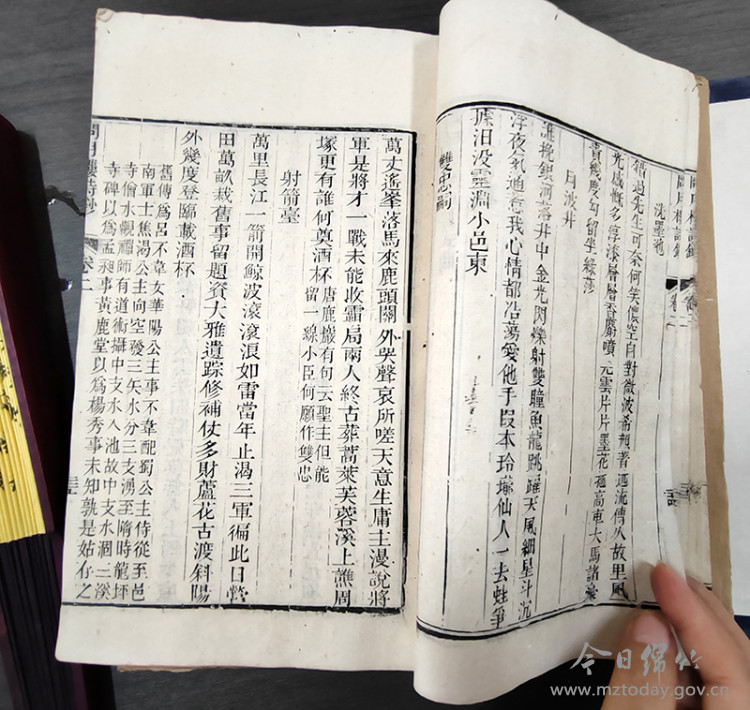 洗墨池
錯過先生可奈何笑儂空自對微波著述流傳久故里風
光感慨多浮漆層層香麝噴元雲片片墨花高車大馬諸豪
貴幾度勾留坐綠莎
月波井
誰挽銀河落井中金光閃爍射雙瞳魚龍跳躍天風細星斗沉
浮夜氣通意我心情都浩蕩愛他手段本玲瓏仙人一去蛙爭
據汩没靈淵小邑東
雙忠祠
萬丈遙峯落馬來鹿頭關外哭聲哀所嗟天意生庸主漫說將
軍是將才一戰未能收霸局兩人終古葬蒿萊芙蓉溪上譙周
塚更有誰何奠酒杯
唐鹿巖有句云聖主但能
留一線小臣何願作雙忠
射箭臺
萬里長江一箭開鯨波滾滾浪如雷當年止渴三軍徧此日營
田萬畝栽舊事留題資大雅遺踪修補仗多財蘆花古渡斜陽
外幾度登臨載酒杯
舊傳為呂不韋女華陽公主事不韋配蜀公主侍從至邑
南軍士焦渴公主向空發三矢水分三支湧至隋時龍坪
寺僧水觀禪師有道術攝中支水入池故中支水涸三溪
寺碑以為孟昶事黃鹿堂以為楊秀事未知孰是姑存之
問月樓詩鈔
卷二
三
今日绵竹
www.mztoday.gov.cn